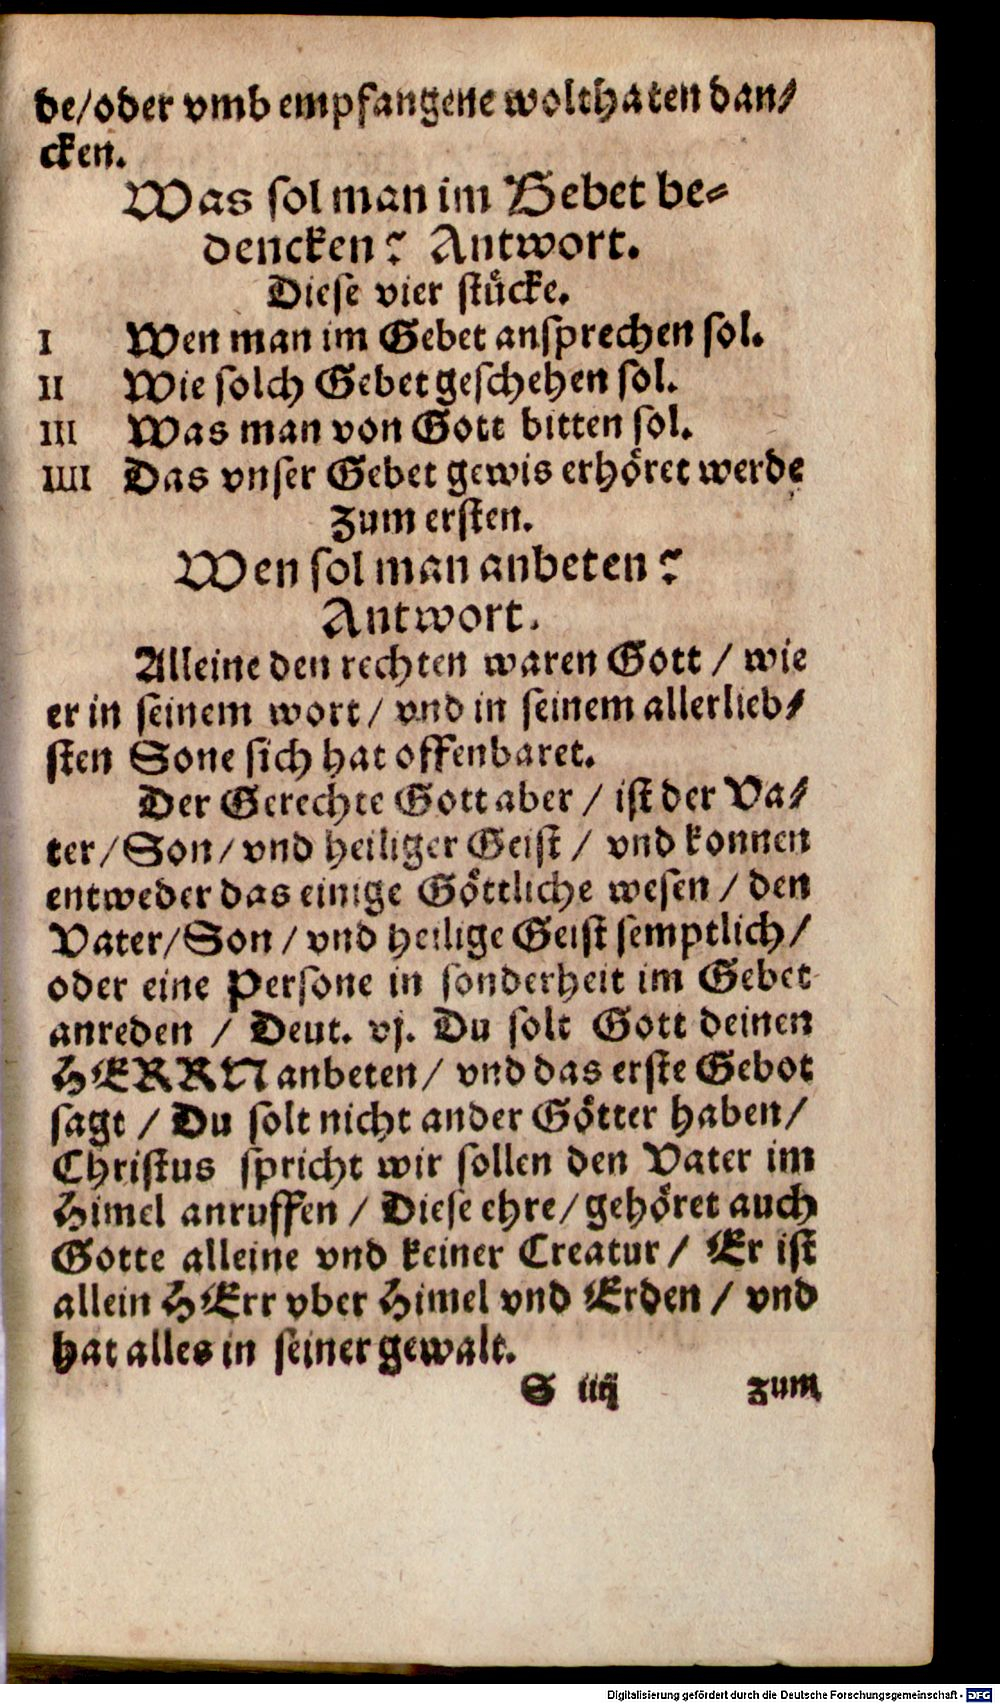 de/oder vmb empfangene wolthaten dan⸗
cken.
Was sol man im Gebet be⸗
dencken? Antwort.
Diese vier stücke.
I Wen man im Gebet ansprechen sol.
II Wie solch Gebet geschehen sol.
III Was man von Gott bitten sol.
IIII Das vnser Gebet gewis erhöret werde
Zum ersten.
Wen sol man anbeten?
Antwort.
Alleine den rechten waren Gott / wie
er in seinem wort / vnd in seinem allerlieb⸗
sten Sone sich hat offenbaret.
Der Gerechte Gott aber / ist der Va⸗
ter/Son/vnd heiliger Geist / vnd konnen
entweder das einige Göttliche wesen / den
Vater/Son / vnd heilige Geist semptlich/
oder eine Persone in sonderheit im Gebet
anreden / Deut. vj. Du solt Gott deinen
HERRN anbeten/ vnd das erste Gebot
sagt / Du solt nicht ander Götter haben/
Christus spricht wir sollen den Vater im
Himel anruffen / Diese ehre/ gehöret auch
Gotte alleine vnd keiner Creatur/ Er ist
allein HErr vber Himel vnd Erden / vnd
hat alles in seiner gewalt.
S iiij zum
Digitalisierung gefördert durch die Deutsche Forschungsgemeinschaft - DFG